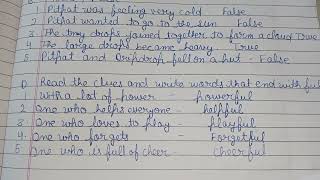 1 Pitpat was feeling very cold False
2 Pitpat wanted to go to the sun - False
3 The tiny drops joined together to form a cloud True
4 The large drops became heavy - True
5 Pitpat and Dropdrop fell on a hut - False
D Read the clues and write words that end with ful
1 With a lot of power - powerful
2 One who helps everyone - helpful
3 One who loves to play - playful
4 One who forgets - Forgetful
5 One who is full of cheer - cheerful